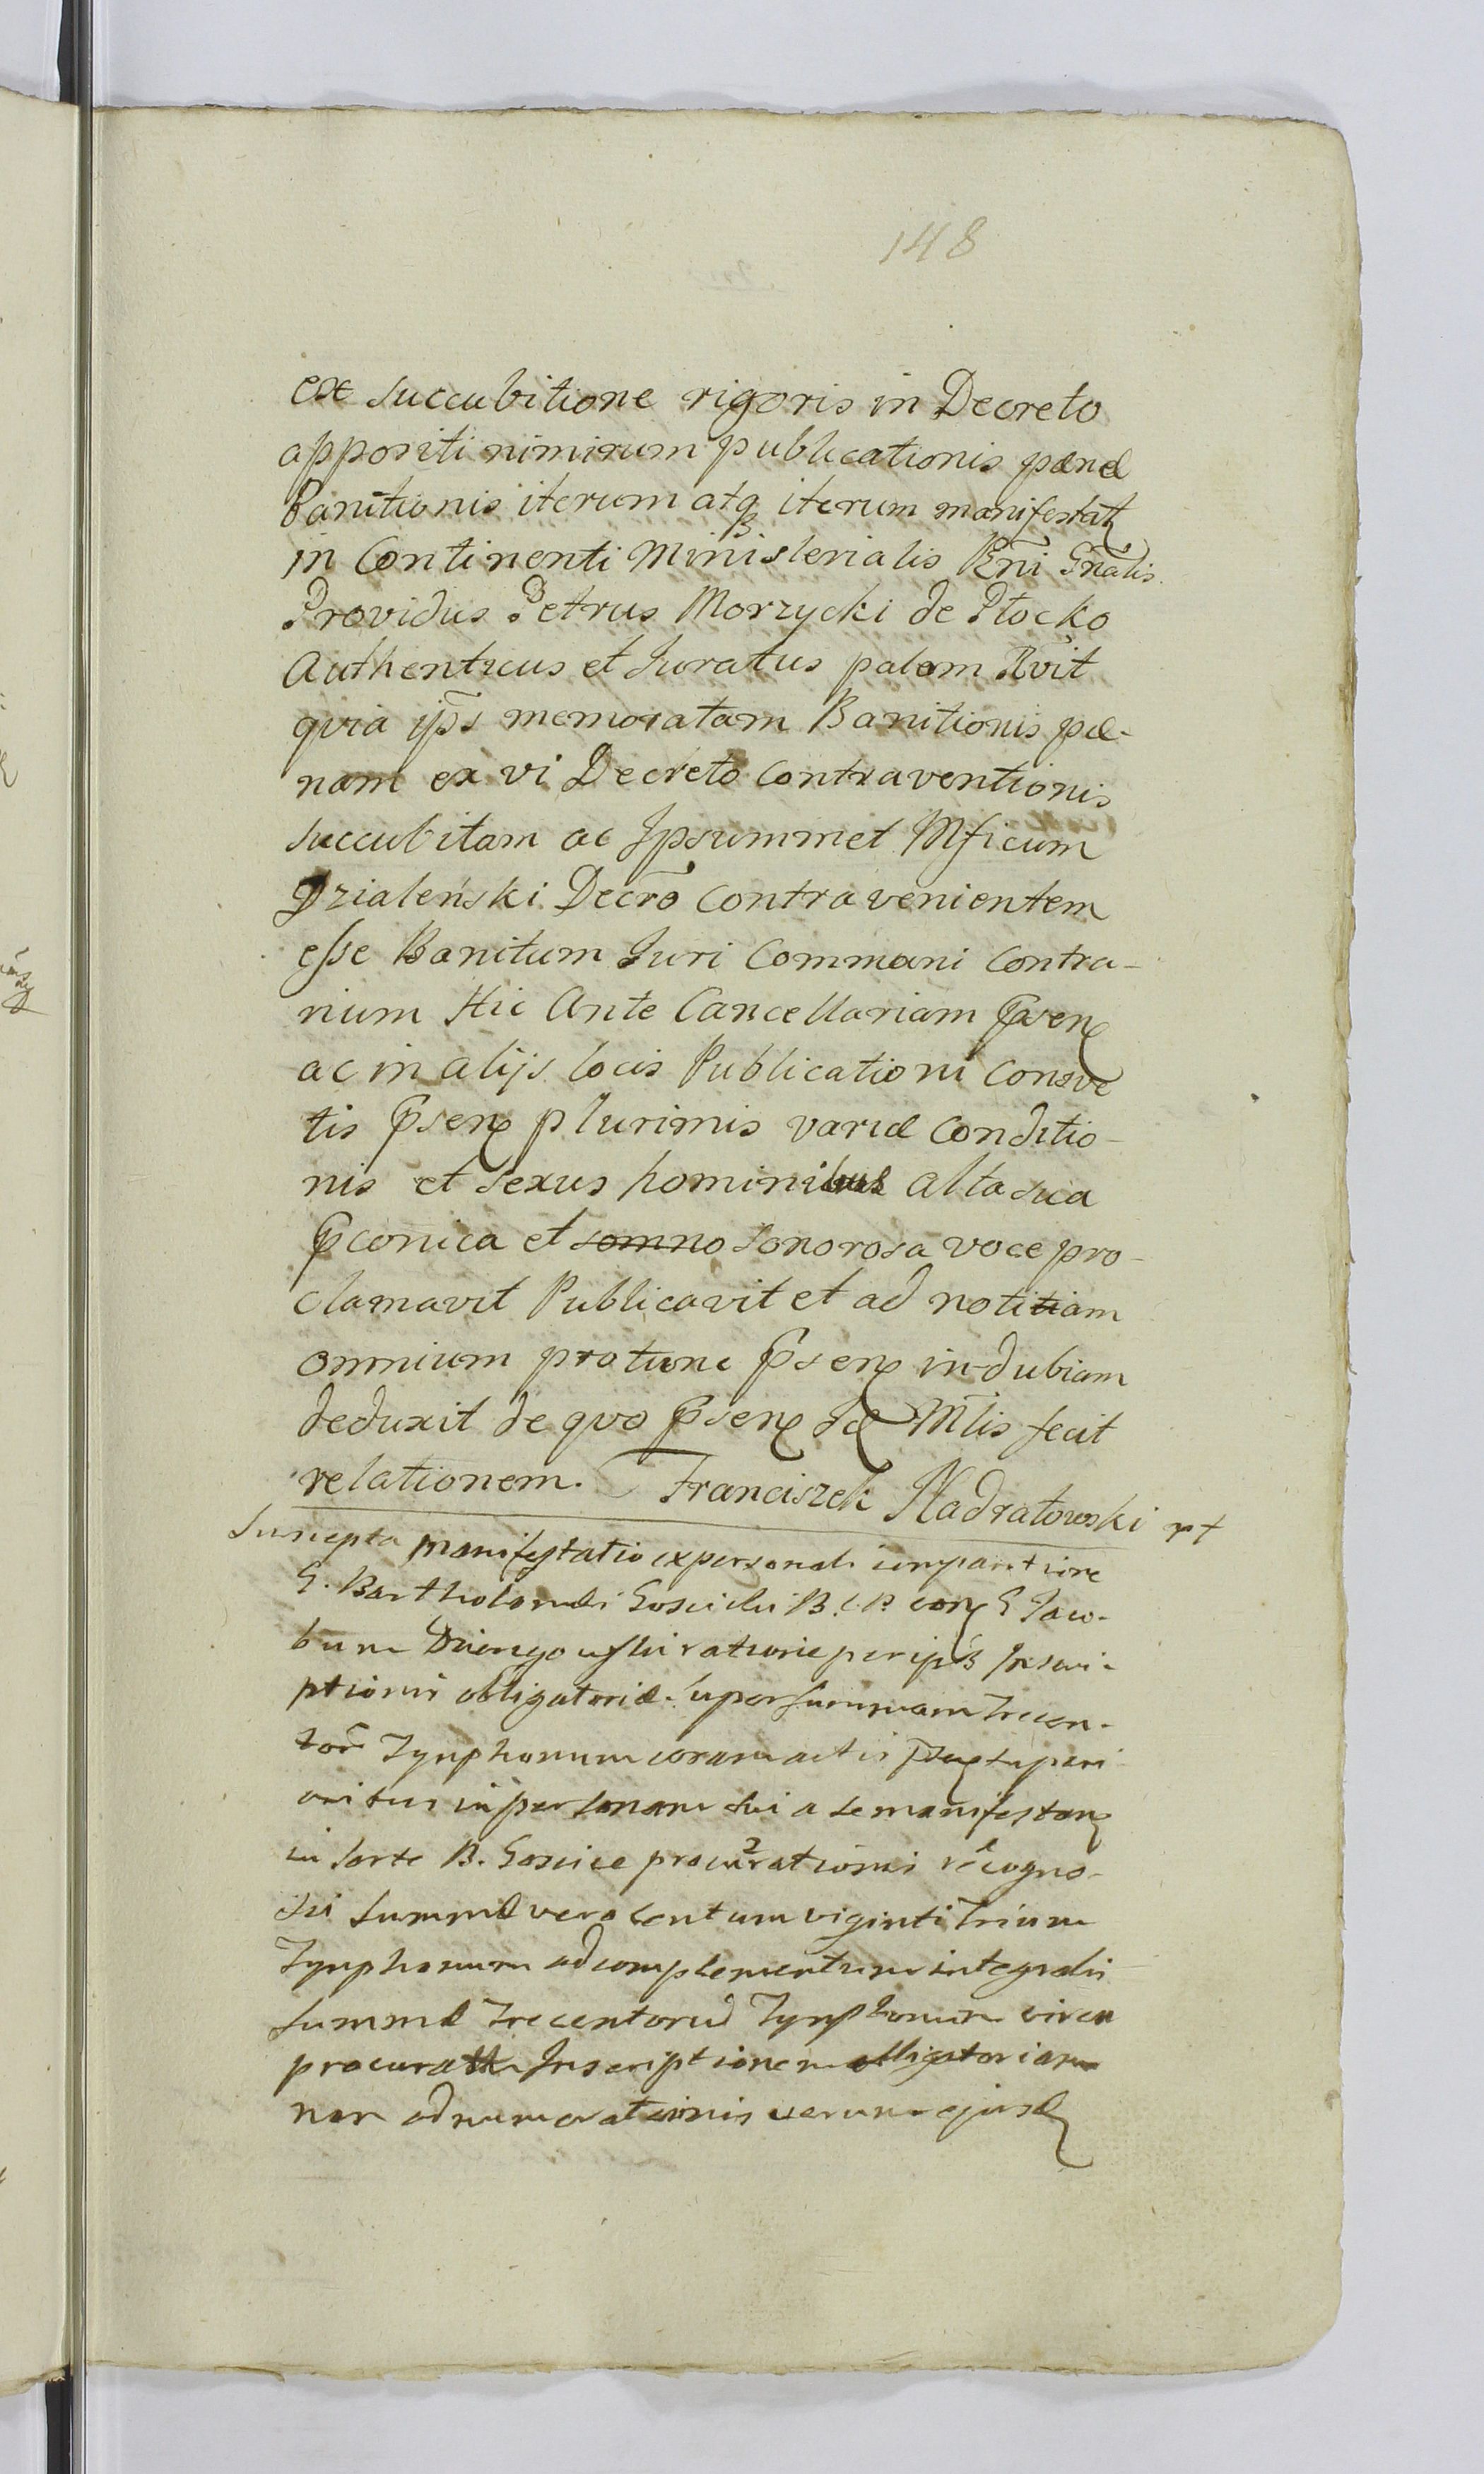 148
ex succubitione rigoris in Decreto
appositi nimirum publicationis pænæ
Banitionis iterum atq iterum manifestat
in Continenti Ministerialis Rñi Gñalis
Providus Petrus Morzycki de Płocko
Authenticus et Juratus palam Rvit
qvia ips memoratam Banitionis pæ-
nam ex vi Decreto contraventionis
succubitam ac Ipsummet Mficum
Dzialeński Decrõ contravenientem
esse Banitum Juri Commani contra-
rium Hic Ante Cancellariam Psen
ac in alijs locis Publicationi Consve
tis Psen plurimis variæ conditio-
nis et sexus hominibus alta sua
Pconica et somno sonorosa voce pro-
clamavit Publicavit et ad notitiam
omnium protunc Psen indubiam
deduxit de qvo Psen Id Mtlis fecit
relationem. Franciszek Nadratowski
Suscepta manifestatio ex personali comparitione
G. Bartholomæi Gościcki B. C. P. con G Jaco-
bum ratione per ips Inscri-
ptionis obligatoriæ super summam trecen-
tor Tynphonum coram actis
in personam sui a se manifestan
in sorte B. Goscice procurationis recogno-
sci summæ vero centum viginti trium
Tynphonum ad complementum integralis
summæ trecentorum Tynphonum circa
Inscriptionem obligatoriam
non adnumerationis verum ejusd